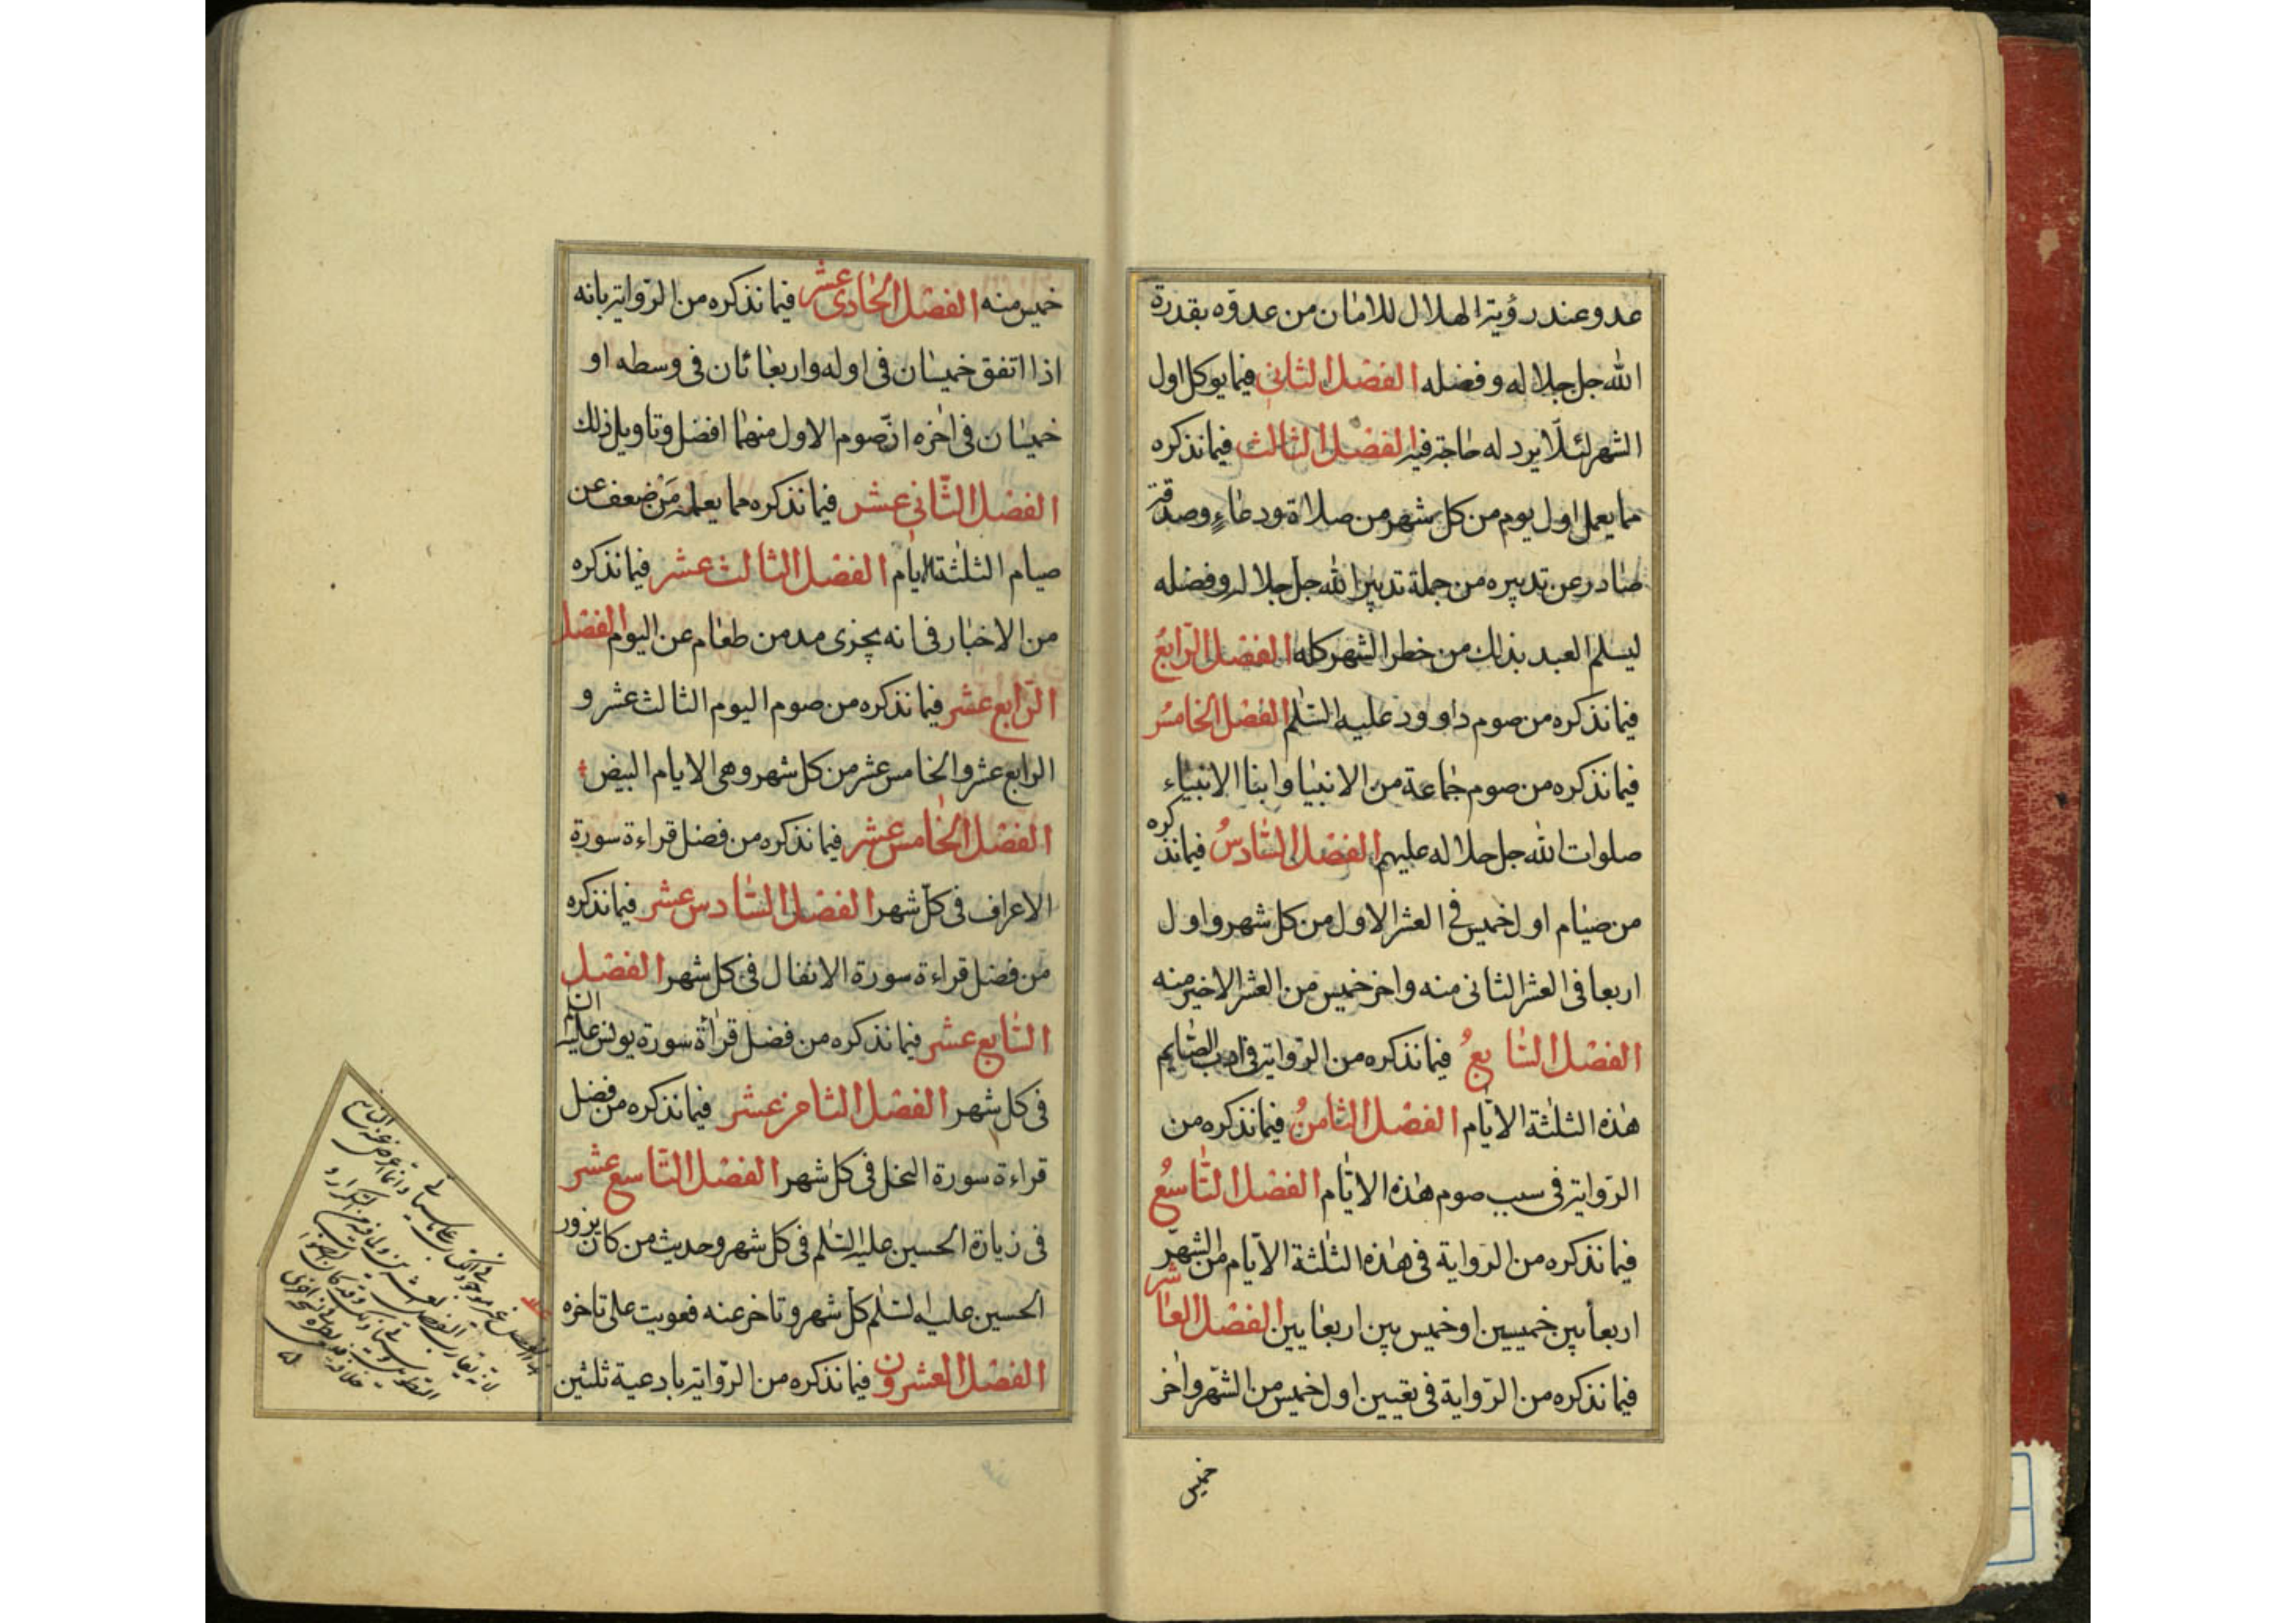 عدو وعند رؤية الهلال للامان من عدوّه بقدرة
الله جل جلاله وفضله الفصل الثاني فيما يوكل اول
الشهر لئلّا يرد له حاجة فيه الفصل الثالث فيما نذكره
مما يعمل اول يوم من كل شهر من صلاة ودعاءٍ وصدقة
صادر عن تدبيره من جملة تدبير الله جل جلاله وفضله
ليسلم العبد بذلك من خطر الشهر كله الفصل الرّابعُ
فيما نذكره من صوم داوود عليه السّلم الفصل الخامسُ
فيما نذكره من صوم جماعة من الانبيا وابنا الانبياء
صلوات الله جل جلاله عليهم الفصل السّادسُ فيما نذكره
من صيام اول خميس في العشر الاول من كل شهر واول
اربعا في العشر الثاني منه واخر خميس من العشر الاخير منه
الفصل السّابعُ فيما نذكره من الرّواية في ادب الصّايم
هذه الثلثة الايّام الفصل الثّامنُ فيما نذكره من
الرّواية في سبب صوم هذه الايّام الفصل التّاسعُ
فيما نذكره من الرّواية في هذه الثلثة الايّام من الشهر
اربعا بين خميسين او خميس بين اربعايين الفصل العاشر
فيما نذكره من الرّواية في تعيين اول خميس من الشّهر واخر
خميس
خميس منه الفصل الحادى عشر فيما نذكره من الرّواية بانه
اذا اتفق خميسان في اوله واربعاءان في وسطه او
خميسان في اخره انّ صوم الاول منهما افضل وتاويل ذلك
الفصل الثّاني عشر فيما نذكره مما يعمله مَن ضعف عن
صيام الثلثة الايام الفصل الثالث عشر فيما نذكره
من الاخبار في انه يجزى مد من طعام عن اليوم الفصل
الرّابع عشر فيما نذكره من صوم اليوم الثالث عشر و
الرابع عشر والخامس عشر من كل شهر وهي الايام البيض
الفصل الخامس عشر فيما نذكره من فضل قراءة سورة
الاعراف في كلّ شهر الفصل السّادس عشر فيما نذكره
من فضل قراءة سورة الانفال في كل شهر الفصل
السّابع عشر فيما نذكره من فضل قراءة سورة يونس عليه السلم
في كل شهر الفصل الثامن عشر فيما نذكره من فضل
قراءة سورة النحل في كل شهر الفصل التّاسع عشر
في زيارة الحسين عليه السّلم في كل شهر وحديث من كان يزور
الحسين عليه السّلم كلّ شهر وتاخر عنه فعوتب على تاخره
الفصل العشرون فيما نذكره من الرّواية بادعية ثلثين